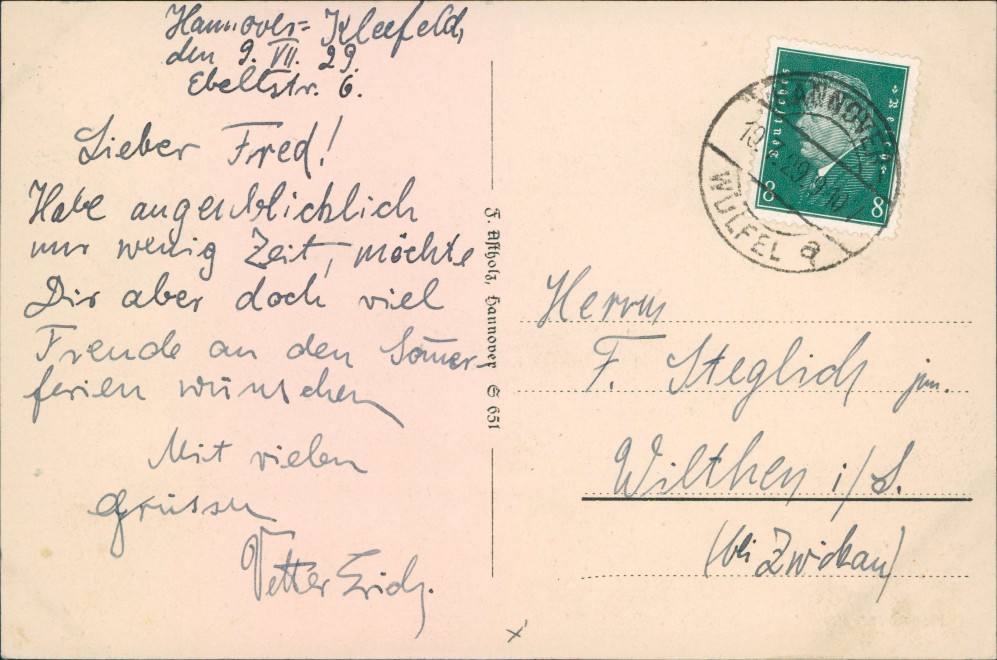 Hannover=Kleefeld,
den 9. VII. 29.
Ebeltstr. 6.
Lieber Fred!
Habe augenblicklich
nur wenig Zeit, möchte
Dir aber doch viel
Freude an den Som̄er-
ferien wünschen
Mit vielen
Grüssen
Vetter Erich.
F. Astholz, Hannover S 651
Deutsches Reich
8 8
HANNOVER-
29.9-10
WÜLFEL a
Herrn
F. Steglich jun.
Wilthen i/S.
(bei Zwickau)